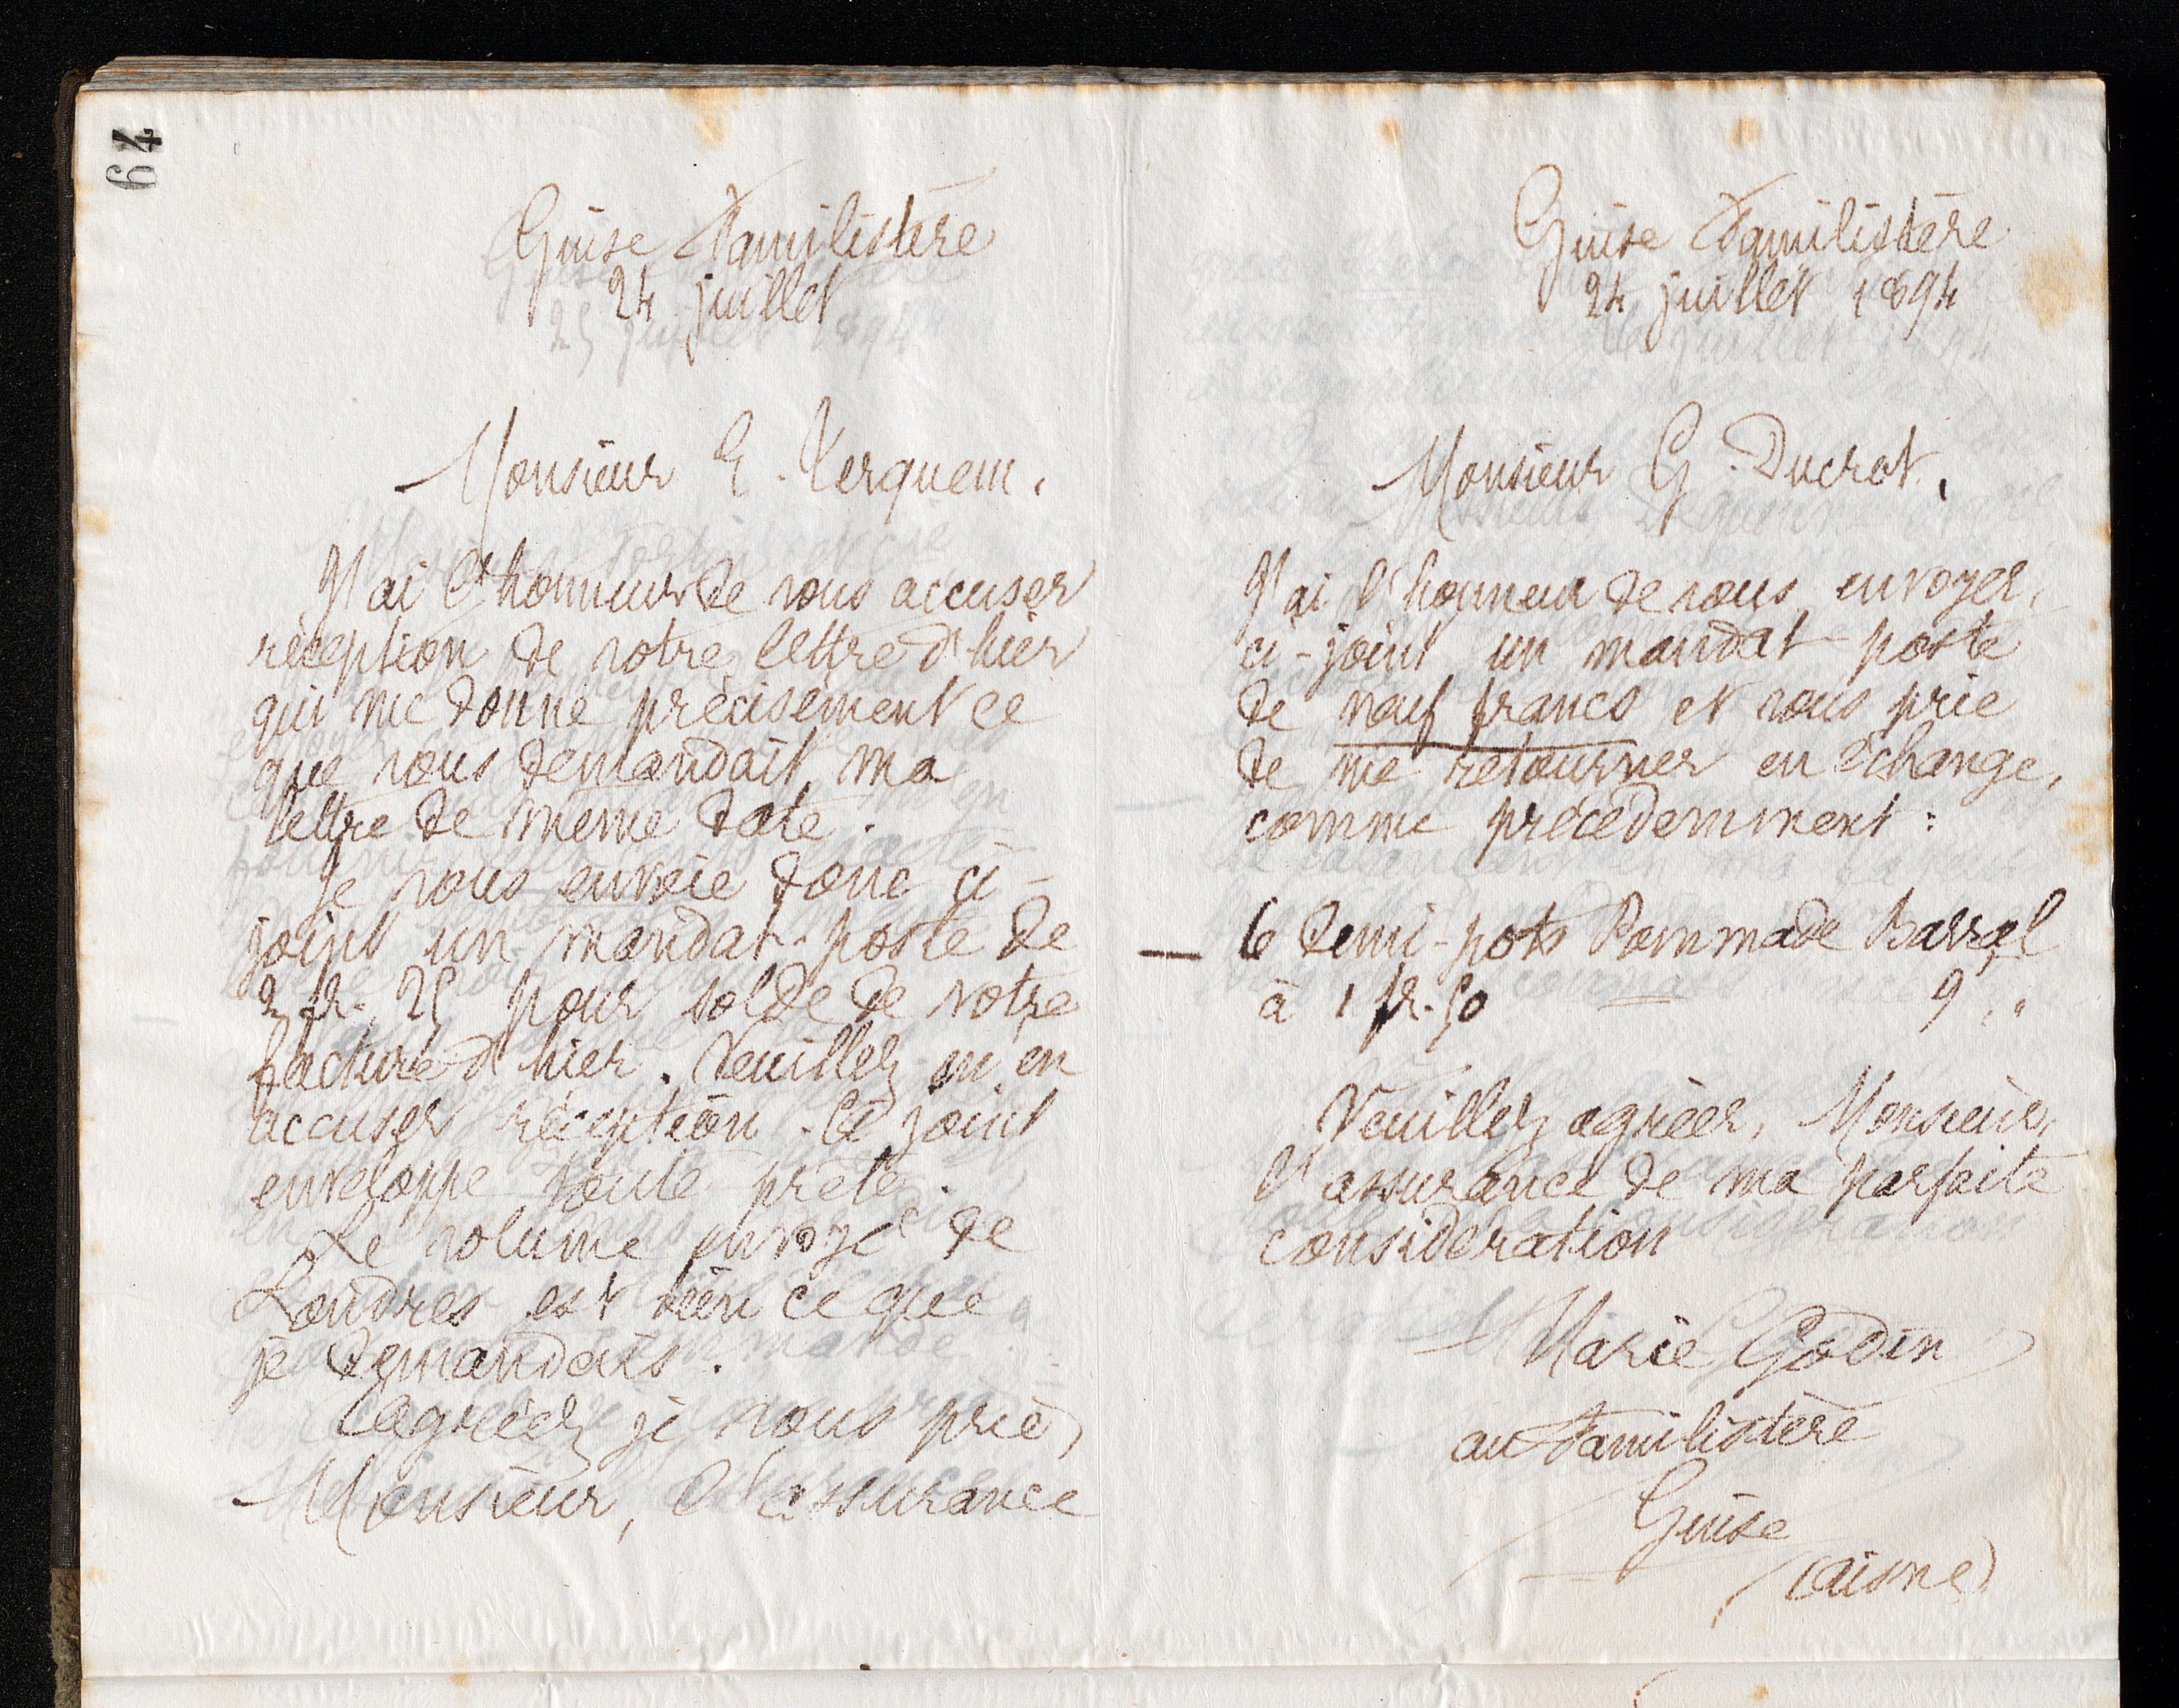 64
Guise Familistère
24 juillet
Monsieur E. Terquem.
J'ai l'honneur de vous accuser
réception de votre lettre d'hier
qui me donne précisément ce
que vous demandait ma
lettre de même date.
Je vous envoie donc ci-
joint un mandat-poste de
2 fr. 25 pour solde de votre
facture d'hier. Veuillez m'en
accuser réception. Ci joint
enveloppe toute prête.
Le volume envoyé de
Londres est bien ce que
je demandais.
Agréez je vous prie,
Monsieur, l'assurance
Guise Familistère
24 juillet 1894
Monsieur G. Ducrot.
J'ai l'honneur de vous envoyer,
ci-joint un mandat-poste
de neuf francs et vous prie
de me retourner en échange,
comme précédemment :
— 6 demi-pots Pommade Barral
à 1 fr. 50 = 9 "
Veuillez agréer, Monsieur,
l'assurance de ma parfaite
considération
Marie Godin
au Familistère
Guise
(Aisne)